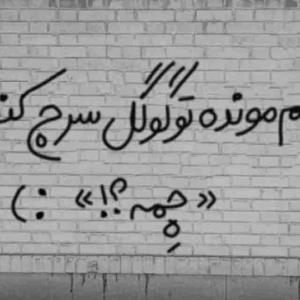 م مونده تو گوگل سرچ کن
«چمه؟!» :)